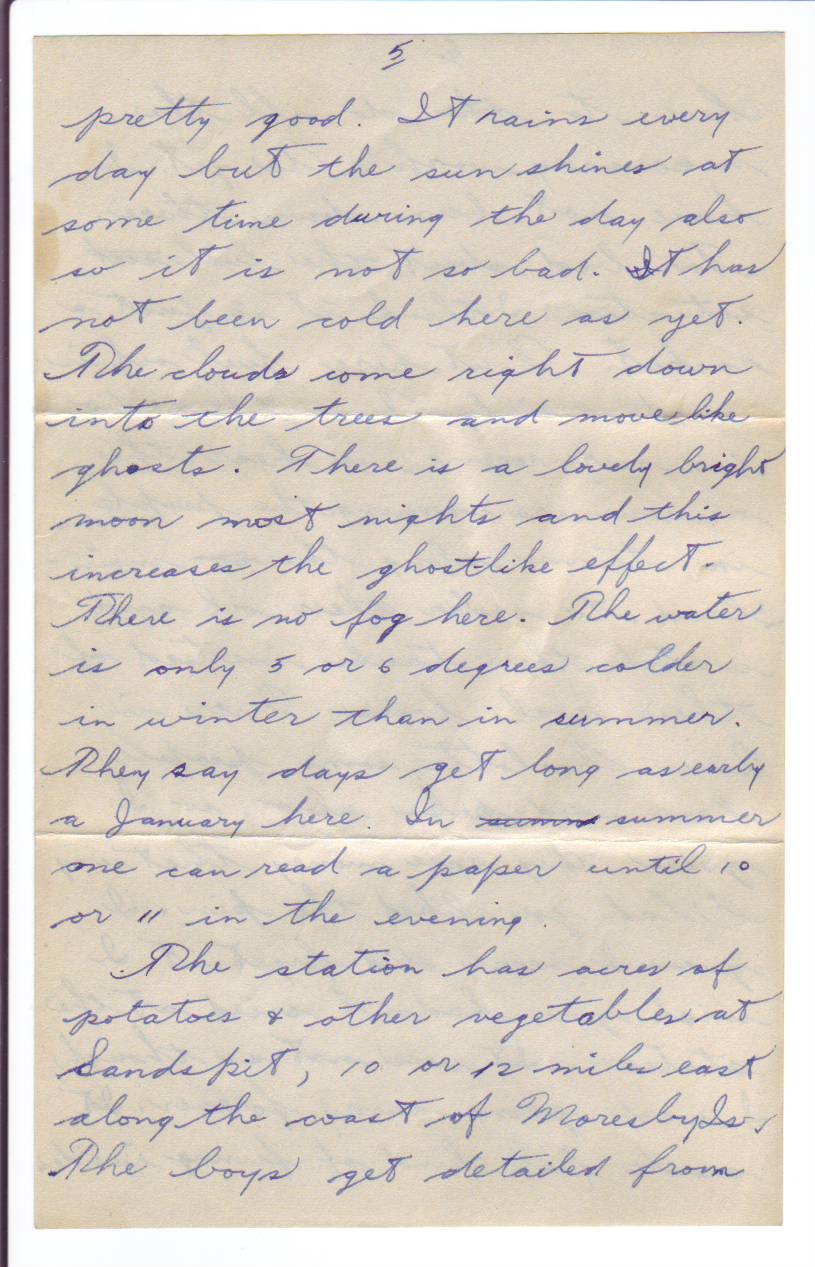 5
pretty good. It rains every
day but the sun shines at
some time during the day also
so it is not so bad. It has
not been cold here as yet.
The clouds come right down
into the trees and move like
ghosts. There is a lovely bright
moon most nights and this
increases the ghost-like effect.
There is no fog here. The water
is only 5 or 6 degrees colder
in winter than in summer.
They say days get long as early
a January here. In summ summer
one can read a paper until 10
or 11 in the evening.
The station has acres of
potatoes & other vegetables at
Sandspit, 10 or 12 miles east
along the coast of Moresby Is.
The boys get detailed from